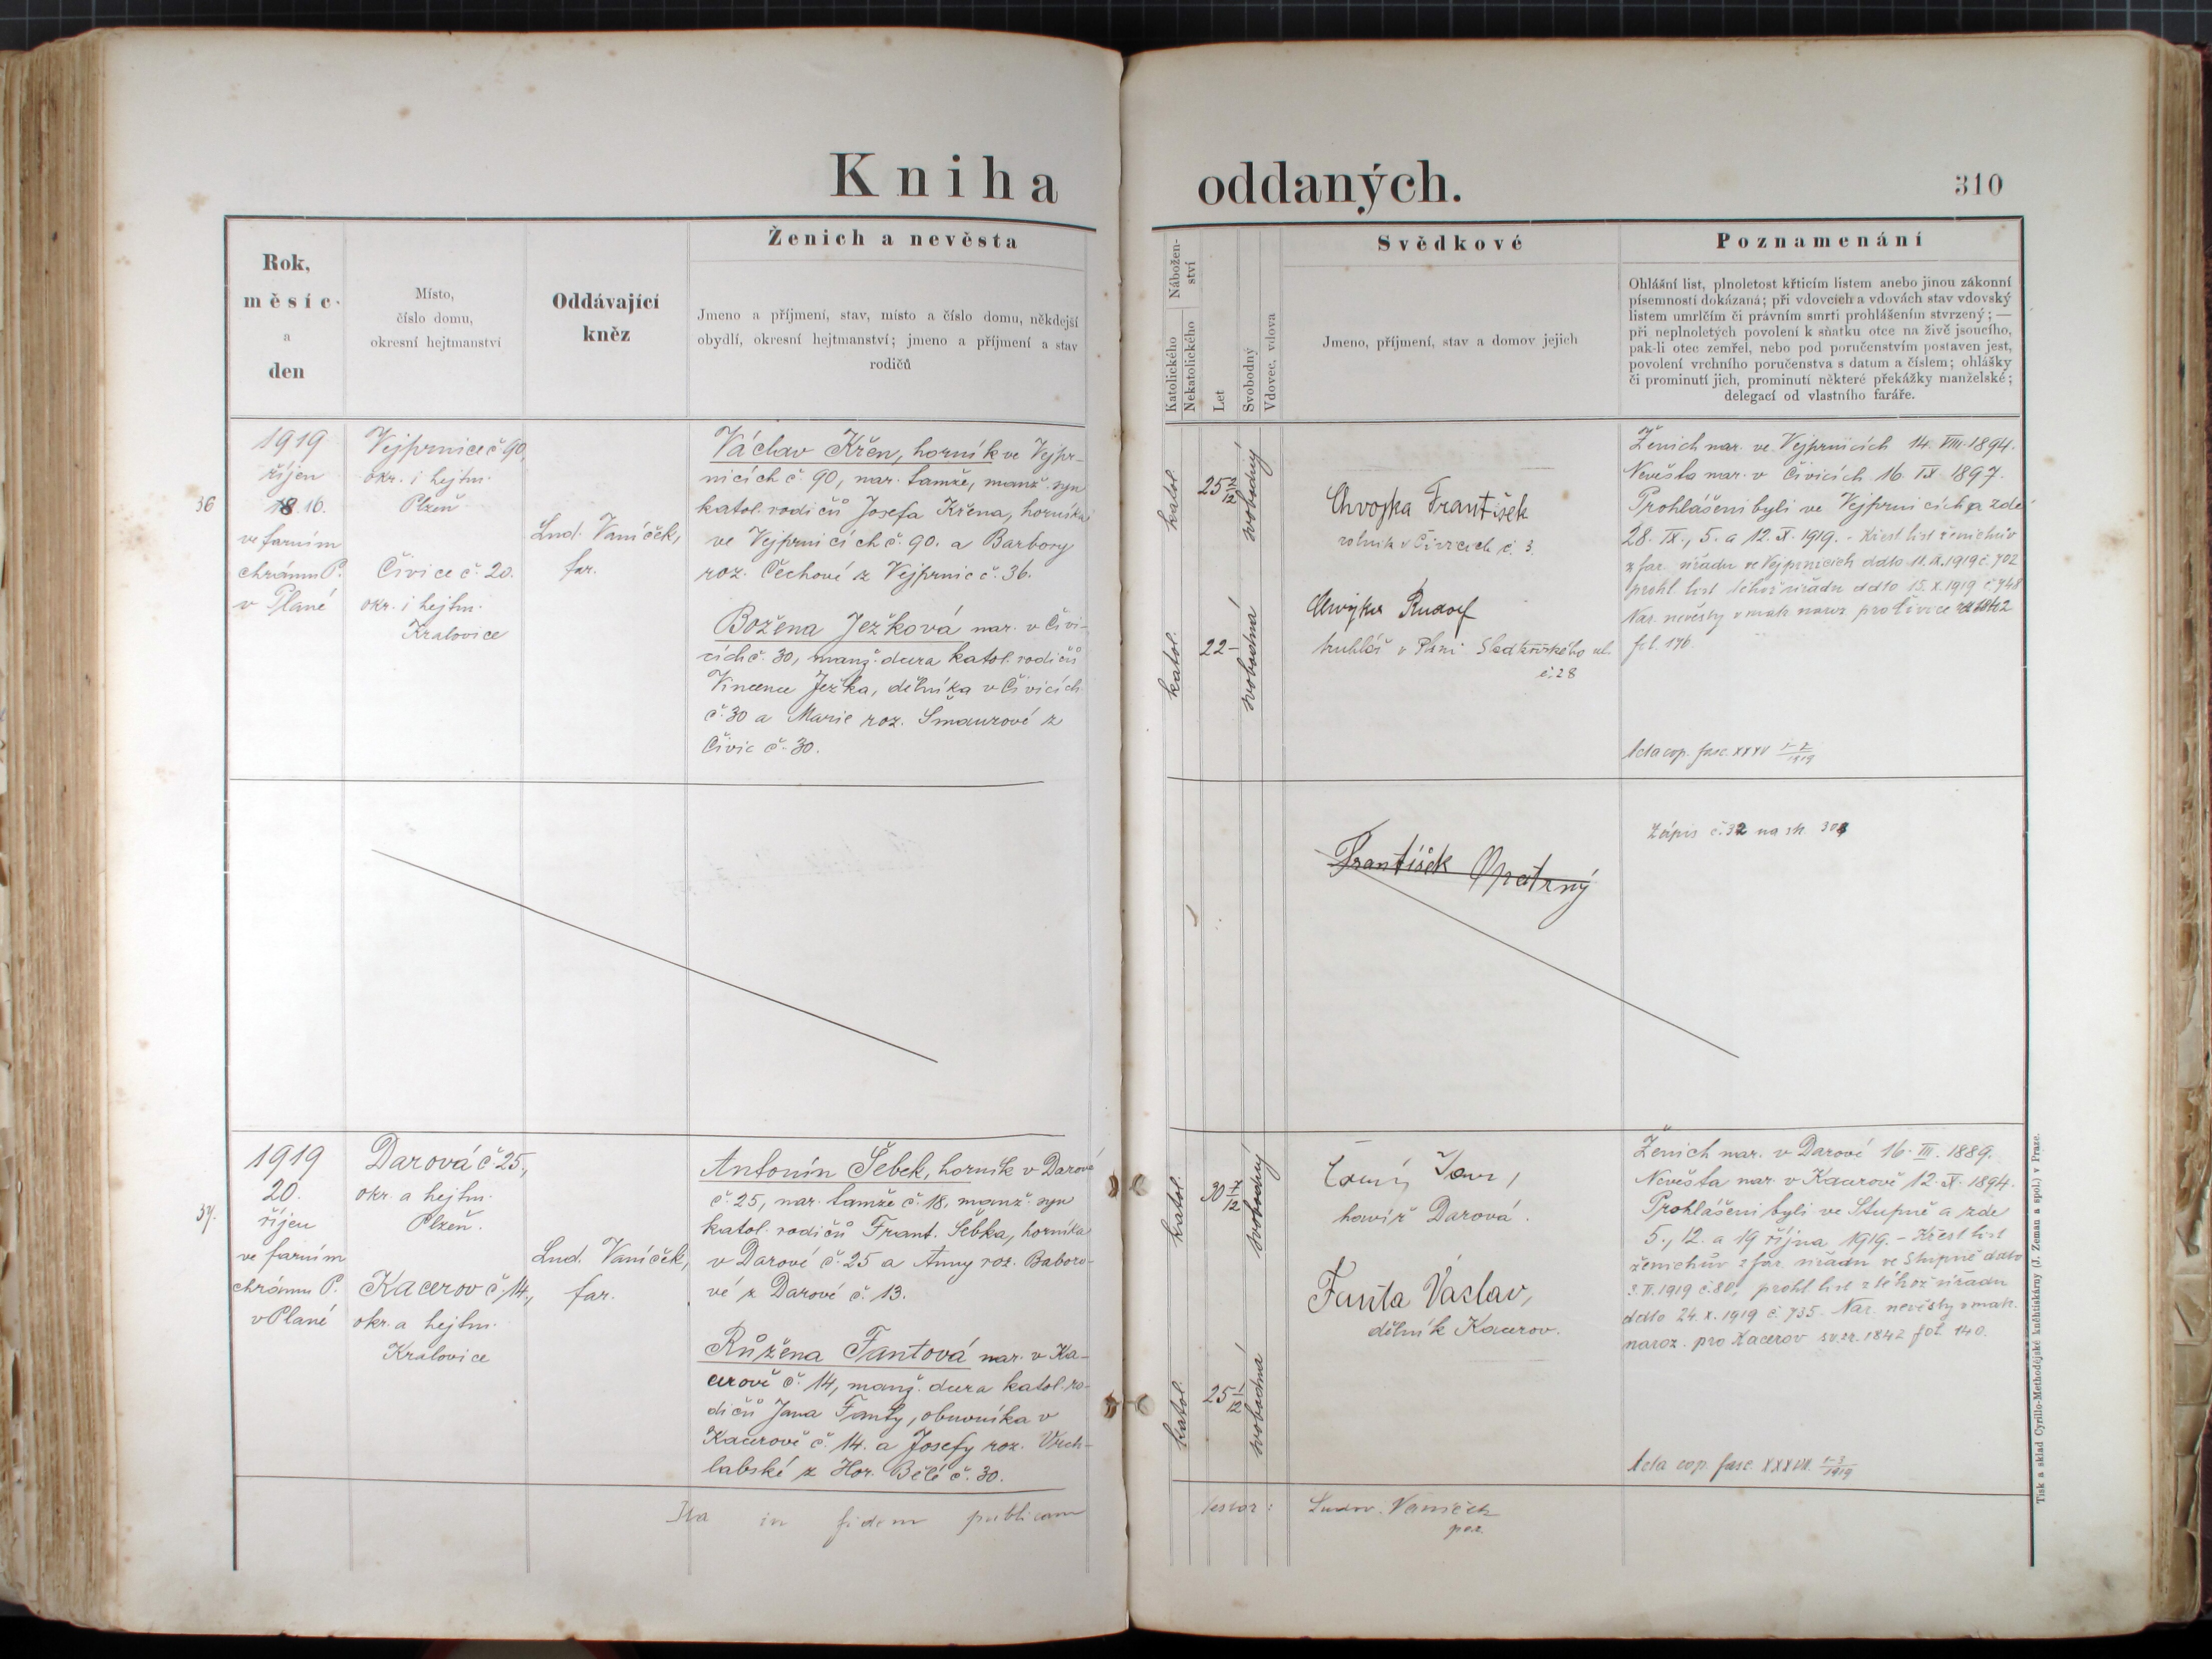 Kniha oddaných.
310
Rok,
měsíc
a
den
Místo,
číslo domu,
okresní hejtmanství
Oddávající
kněz
Ženich a nevěsta
Jmeno a příjmení, stav, místo a číslo domu, někdejší
obydlí, okresní hejtmanství; jmeno a příjmení a stav
rodičů
Nábožen-
ství
Katolického
Nekatolického
Let
Svobodný
Vdovec, vdova
Svědkové
Jmeno, příjmení, stav a domov jejich
Poznamenání
Ohlášní list, plnoletost křticím listem anebo jinou zákonní
písemností dokázaná; při vdovcích a vdovách stav vdovský
listem umrlčím či právním smrti prohlášením stvrzený; —
při neplnoletých povolení k sňatku otce na živě jsoucího,
pak-li otec zemřel, nebo pod poručenstvím postaven jest,
povolení vrchního poručenstva s datum a číslem; ohlášky
či prominutí jich, prominutí některé překážky manželské;
delegací od vlastního faráře.
36
1919
říjen
18. 16.
ve farním
chrámu P.
v Plané
Vejprnice č 90,
okr. i hejtm.
Plzeň
Čivice č. 20.
okr. i hejtm.
Kralovice
Lud. Vaníček,
far.
Václav Křen, horník ve Vejpr-
nicích č. 90, nar. tamže, manž. syn
katol. rodičů Josefa Křena, horníka
ve Vejprnicích č. 90. a Barbory
roz. Čechové z Vejprnic č. 36.
Božena Ježková nar. v Čivi-
cích č. 30, manž. dcera katol. rodičů
Vincence Ježka, dělníka v Čivicích
č. 30 a Marie roz. Šmaurové z
Čivic č. 30.
katol.
25 2/12
svobodný
katol.
22 -
svobodná
Chvojka František
rolník v Čivicích č. 3.
Chvojka Rudolf
truhlář v Plzni Sladkovského ul.
č. 28
Ženich nar. ve Vejprnicích 14. VIII. 1894.
Nevěsta nar. v Čivicích 16. IX 1897.
Prohlášeni byli ve Vejprnicích a zde
28. IX., 5. a 12. X. 1919. - Křest. list ženichův
z far. úřadu ve Vejprnicích ddto 11. IX. 1919 č. 702
prohl. list téhož úřadu ddto 15. X. 1919 č 748
Nar. nevěsty v matr. naroz. pro Čivice
fol. 176.
Acta cop. fasc. XXXVI 1-2/1919
František Opatrný
Zápis č. 32 na str. 308
37.
1919
20.
říjen
ve farním
chrámu P.
v Plané
Darová č 25,
okr. a hejtm.
Plzeň.
Kacerov č. 14,
okr. a hejtm.
Kralovice
Lud. Vaníček,
far.
Antonín Šebek, horník v Darové
č 25, nar. tamže č. 18, manž. syn
katol. rodičů Frant. Šebka, horníka
v Darové č. 25 a Anny roz. Baboro-
vé z Darové č. 13.
Růžena Fantová nar. v Ka-
cerově č. 14, manž. dcera katol. ro-
dičů Jana Fanty, obuvníka v
Kacerově č. 14. a Josefy roz. Vrch-
labské z Hor. Bělé č. 30.
katol.
30 7/12
svobodný
katol.
25 1/12
svobodná
Jan,
havíř Darová.
Fanta Václav,
dělník Kacerov.
Ženich nar. v Darové 16. III. 1889.
Nevěsta nar. v Kacerově 12. X. 1894.
Prohlášeni byli ve Stupně a zde
5., 12. a 19 října 1919. - Křest list
ženichův z far. úřadu ve Stupně ddto
1919 č. 80, prohl. list z téhož úřadu
ddto 24. X. 1919 č. 735. Nar. nevěsty v matr.
naroz. pro Kacerov sv. zr. 1842 fol. 140.
Acta cop. fasc. XXXVII. 1-3/1919
Ita in fidem publicam
testor: Ludv. Vaníček
Tisk a sklad Cyrillo-Methodějské knihtiskárny (J. Zeman a spol.) v Praze.